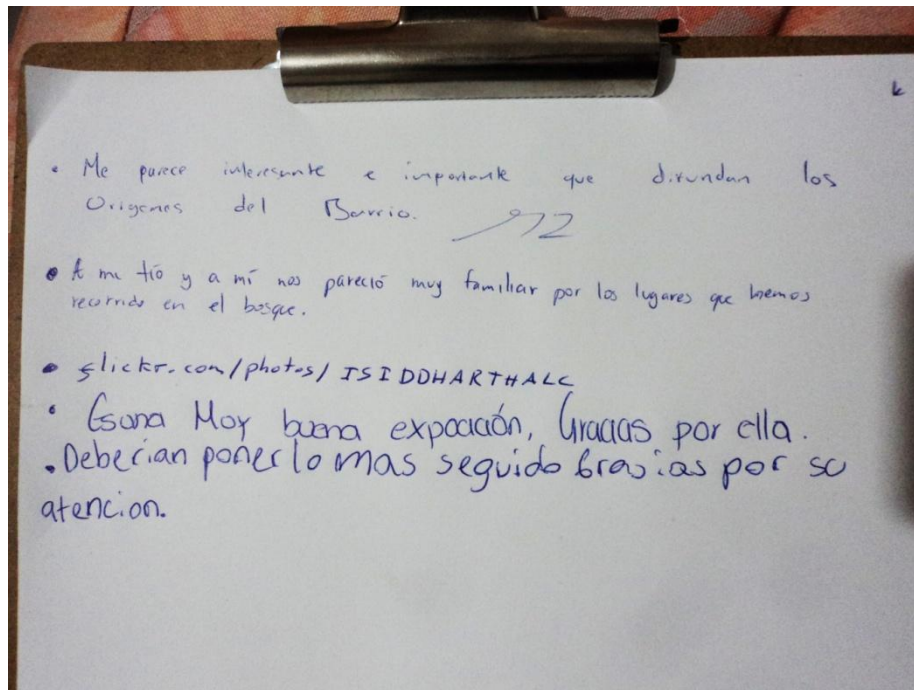 k
• Me parece interesante e importante que difundan los
Origenes del Barrio.
• A mi tío y a mí nos pareció muy familiar por los lugares que hemos
recorrido en el bosque.
• flickr.com/photos/ISIDDHARTHALC
• Es una Moy buena expocición, Gracias por ella.
• Deberian ponerlo mas seguido Gracias por su
atencion.